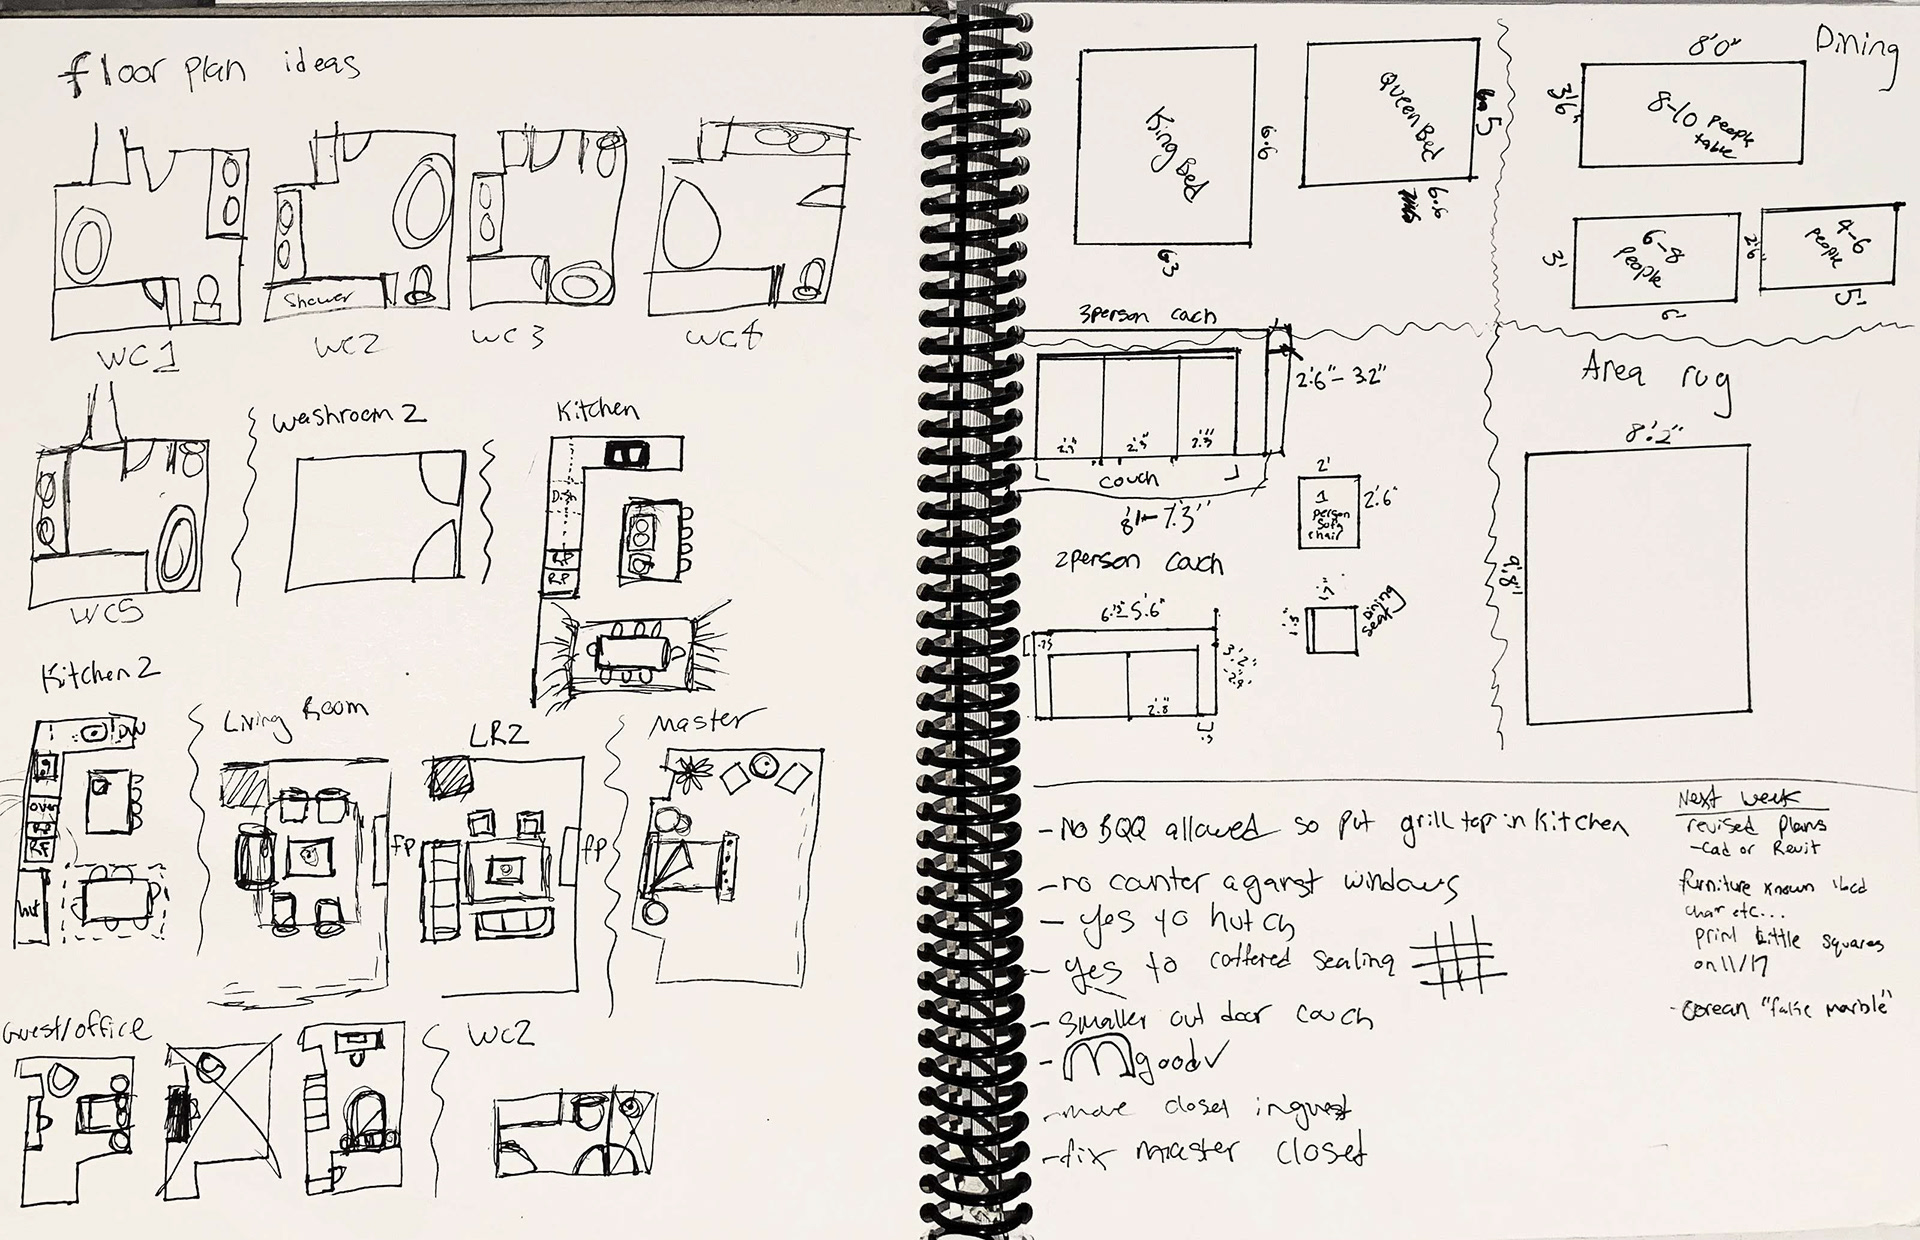 floor plan ideas
WC1
Shower
WC2
WC3
WC4
WC5
Washroom 2
Kitchen
Dish
RF
RF
Kitchen 2
DW
oven
RF
hut
Living Room
fp
LR2
fp
Master
Guest/office
WC2
King Bed
6.6
63
Queen Bed
5
6.6
Dining
8'0"
3'6"
8-10 people
table
3'
6-8
people
6'
2'6"
4-6
people
5'
3person couch
2'6"-32"
2'.3"
2'.3"
2'.3"
couch
8'-7'.3"
2'
1
person
sofa
chair
2'.6"
2person couch
5'.6"
.75
3'.2"
2'.8"
.5
1'.7"
1'.5"
Dining
seat
Area rug
8'.2"
9'.8"
- No BQQ allowed so put grill top in kitchen
- no counter against windows
- yes to hutch
- yes to coffered sealing
- smaller out door couch
- good
- move closet in guest
- fix master closet
Next week
revised plans
- Cad or Revit
furniture known
char etc...
print little squares
on 11/17
- corean "false marble"